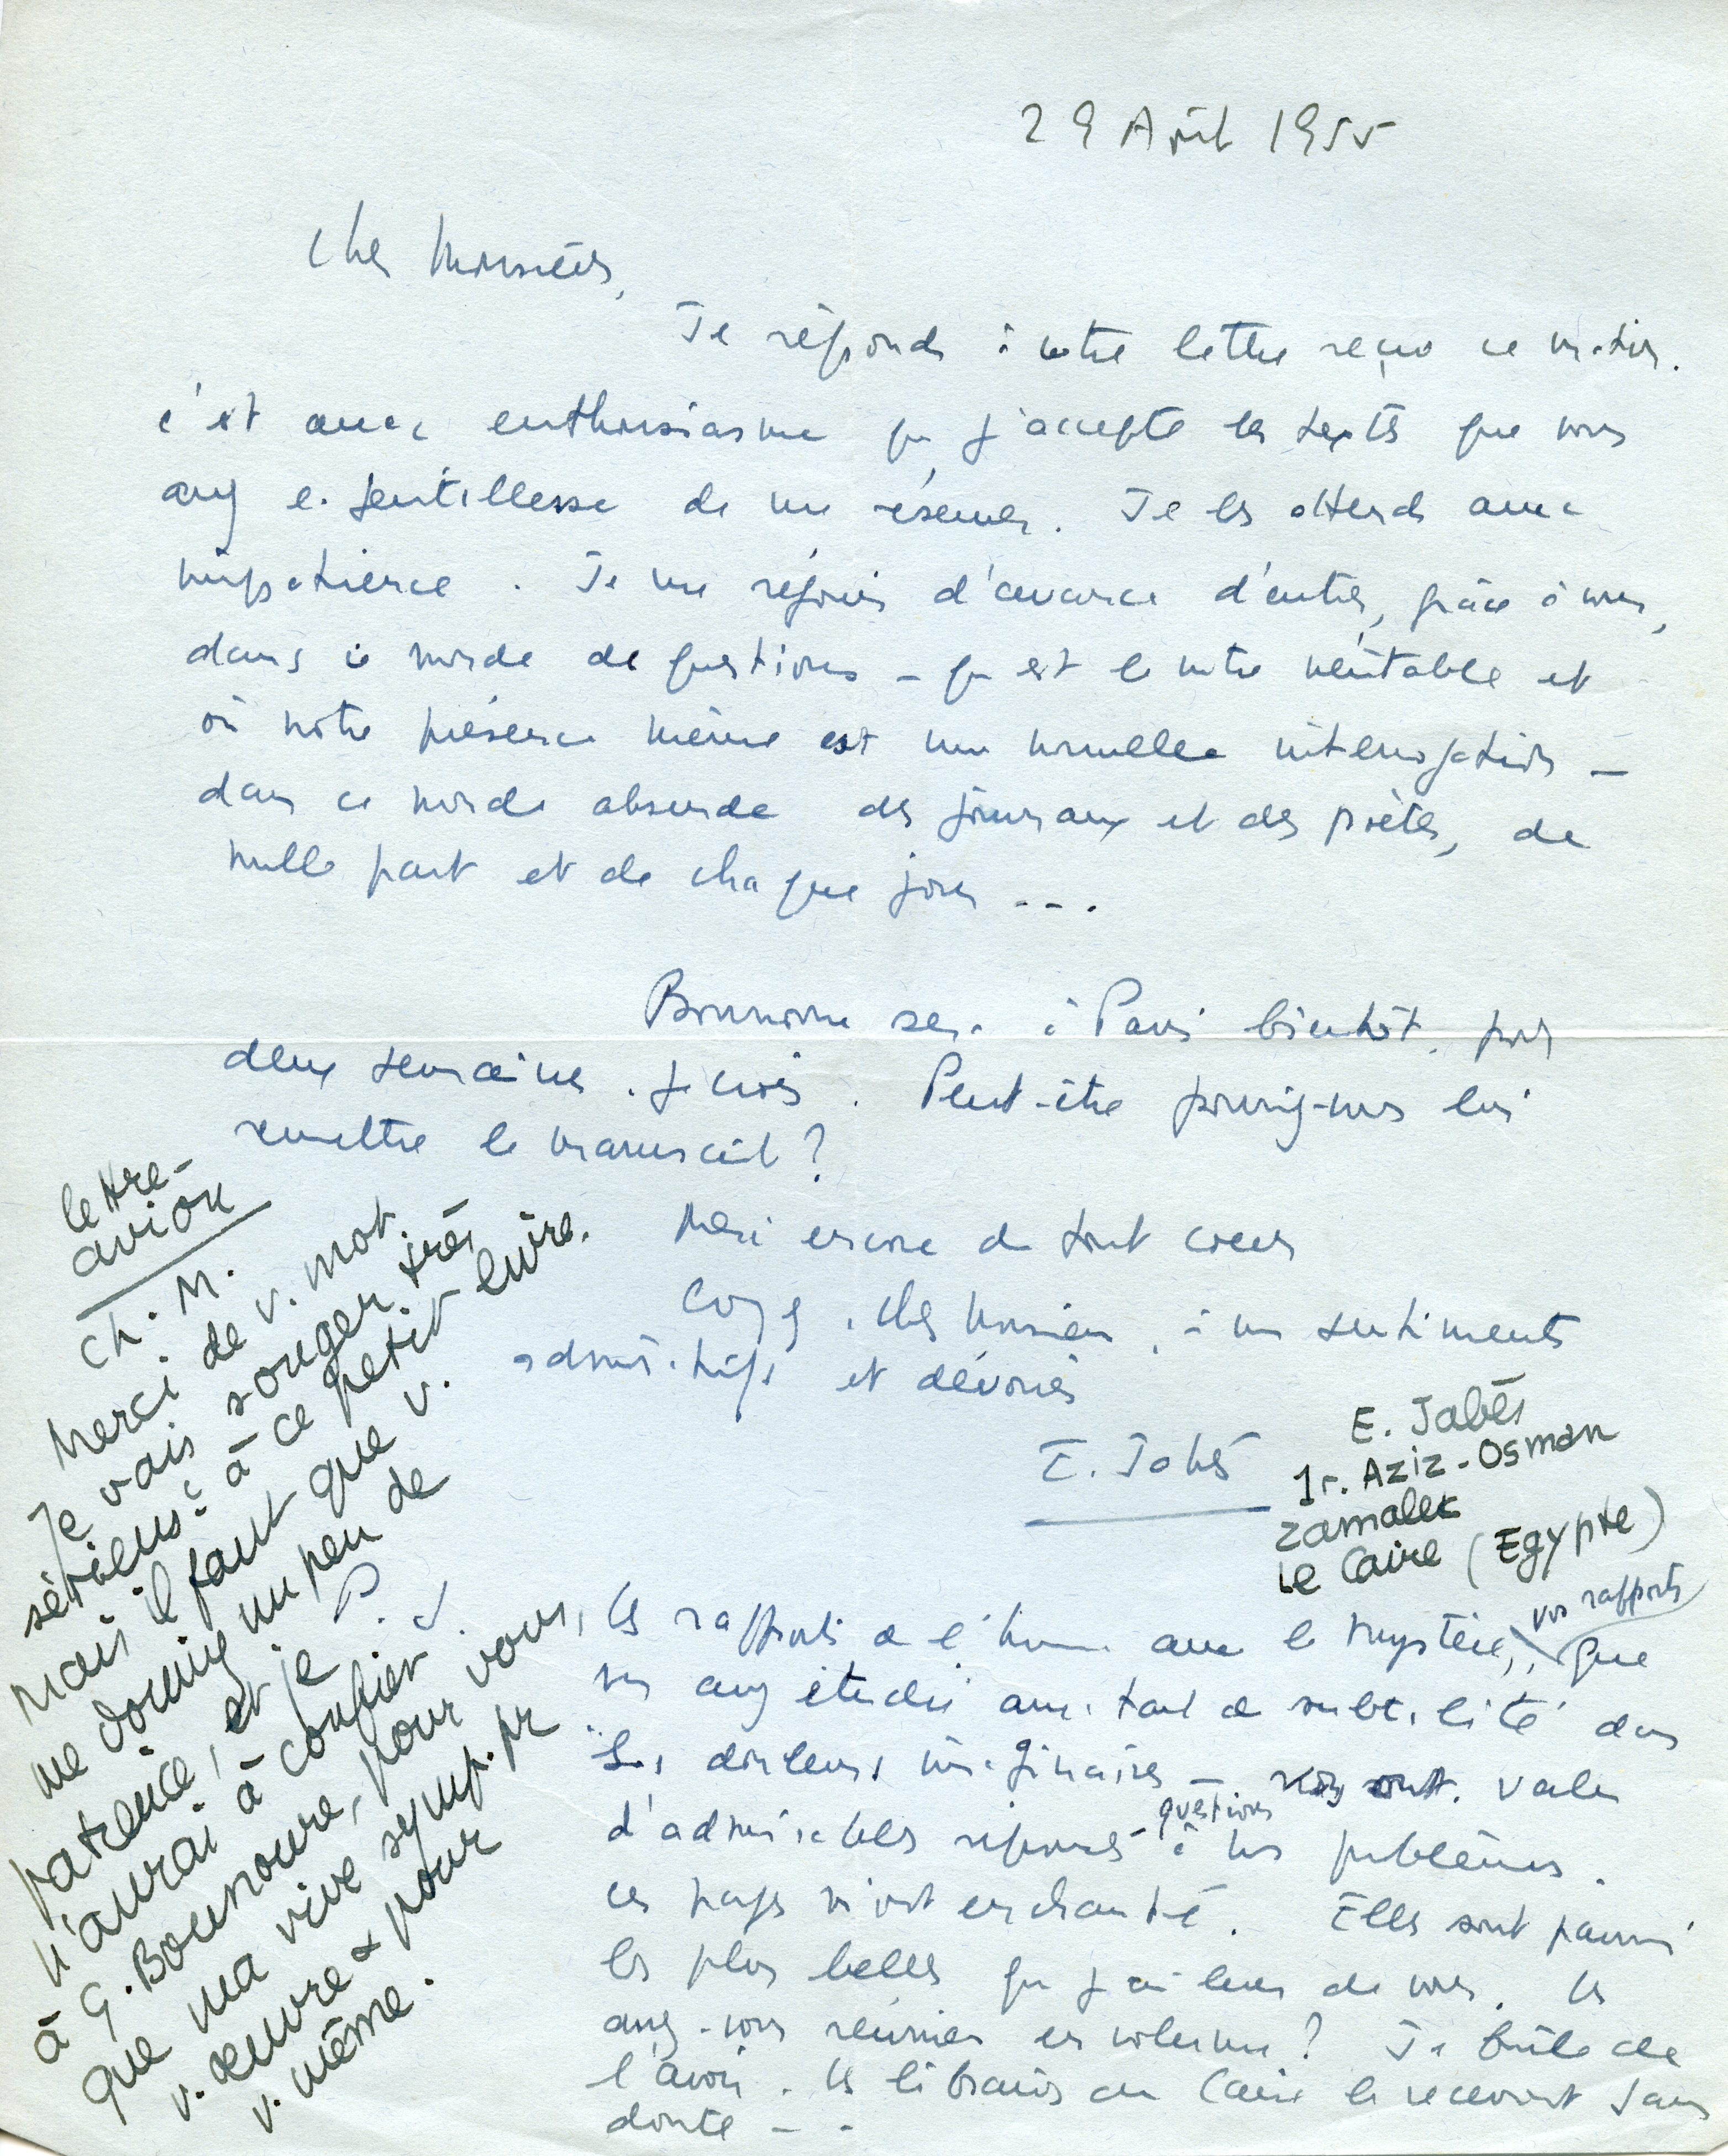 29 Août 1955
Cher Monsieur,
Je réponds à votre lettre reçue ce matin.
C'est avec enthousiasme que j'accepte les textes que vous
avez la gentillesse de me réserver. Je les attends avec
impatience. Je me réjouis d'avance d'entrer, grâce à vous,
dans ce monde de questions – qui est le nôtre véritable et
où notre présence même est une nouvelle interrogation –
dans ce monde absurde des journaux et des poètes, de
nulle part et de chaque jour ...
Bounoure sera à Paris bientôt. pour
deux semaines. je crois. Peut-être pourriez-vous lui
remettre le manuscrit?
Merci encore de tout coeur
Croyez, cher Monsieur, à mes sentiments
admiratifs et dévoués
E. Jabès
E. Jabès
1 r. Aziz-Osman
Zamalek
Le Caire (Egypte)
Les rapports de l'homme avec le mystère, vos rapports que
vous avez étudié avec tant de subtilité dans
"Les douleurs imaginaires – valent
d'admirables réponses-questions à nos problèmes.
Ces pages m'ont enchanté. Elles sont parmi
les plus belles que j'ai lues de vous. Les
avez-vous réunies en volume? Je brûle de
l'avoir. Les libraires du Caire le recevront sans
doute - -
lettre-
avion
Ch. M.
Merci de v. mot.
Je vais songer très
sérieus^t à ce petit livre.
Mais il faut que v.
me donniez un peu de
patience, et je
n'aurai à confier
à G. Bounoure, pour vous,
que ma vive symp. pr
v. oeuvre & pour
v. même.
J. P.